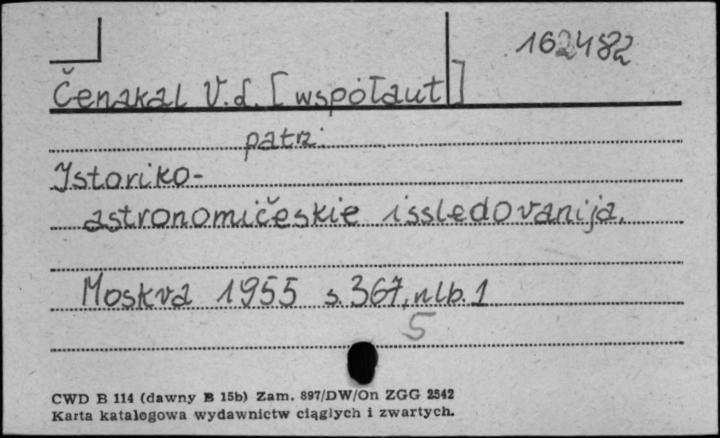 162482
Čenakal V. L. [współaut]
patrz.
Istoriko-
astronomičeskie issledovanija.
Moskva 1955 s. 367, nlb. 1
5
CWD B 114 (dawny B 15b) Zam. 897/DW/On ZGG 2542
Karta katalogowa wydawnictw ciągłych i zwartych.